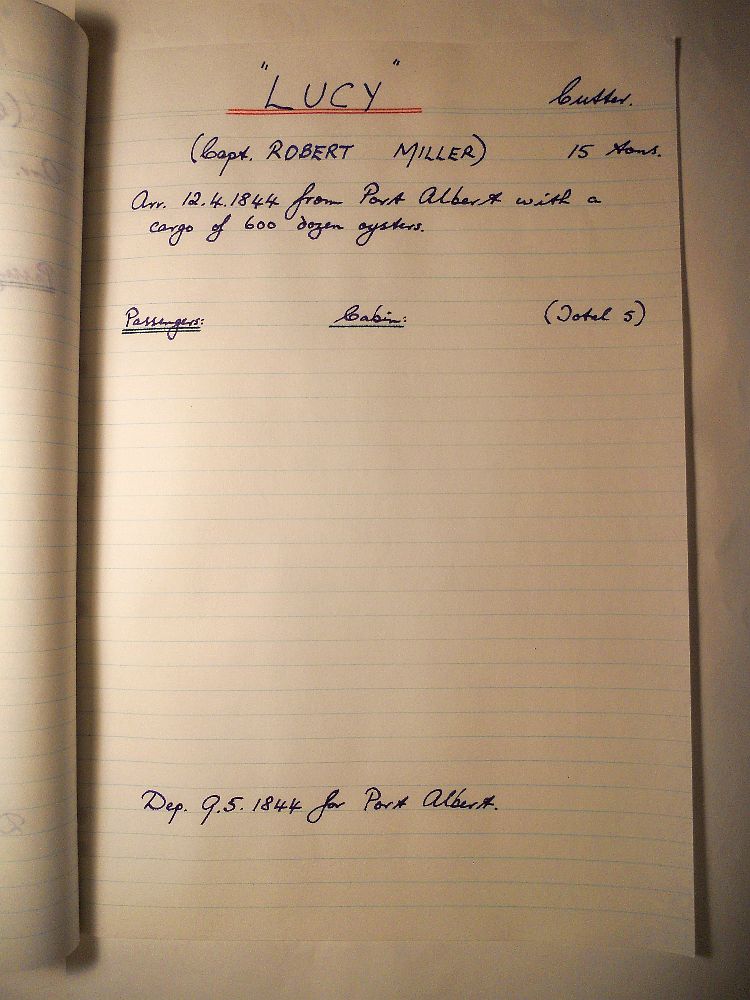 "LUCY" Cutter.
(Capt. ROBERT MILLER) 15 tons.
Arr. 12.4.1844 from Port Albert with a
cargo of 600 dozen oysters.
Passengers: Cabin: (Total 5)
Dep. 9.5.1844 for Port Albert.